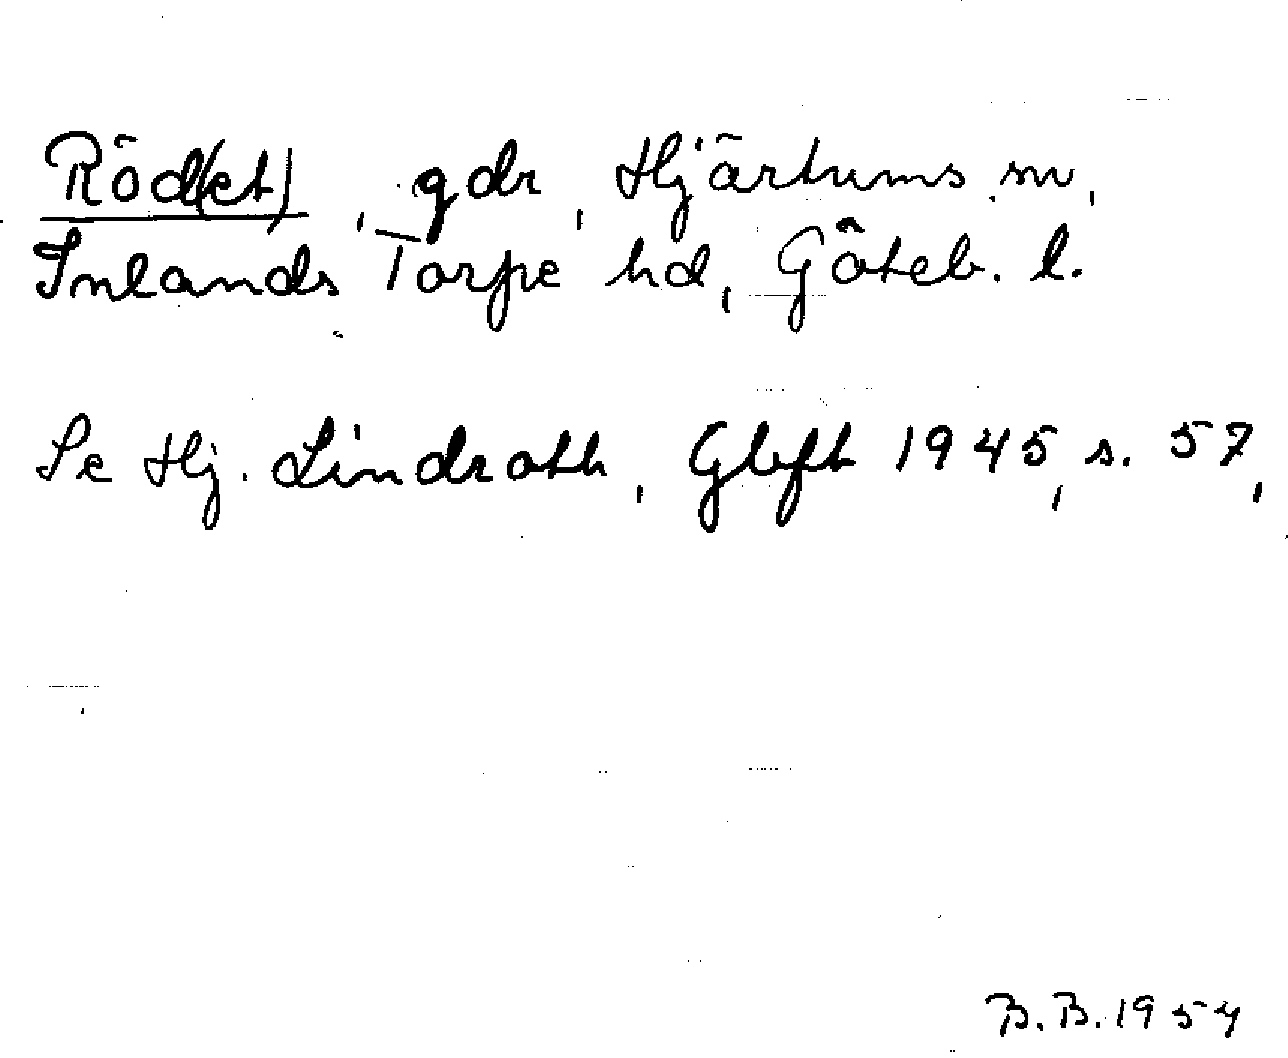 Röd(et), gdr, Hjärtums sn,
Inlands Torpe hd, Göteb. l.
Se Hj. Lindroth, Gbgft 1945, s. 57,
B.B. 1954